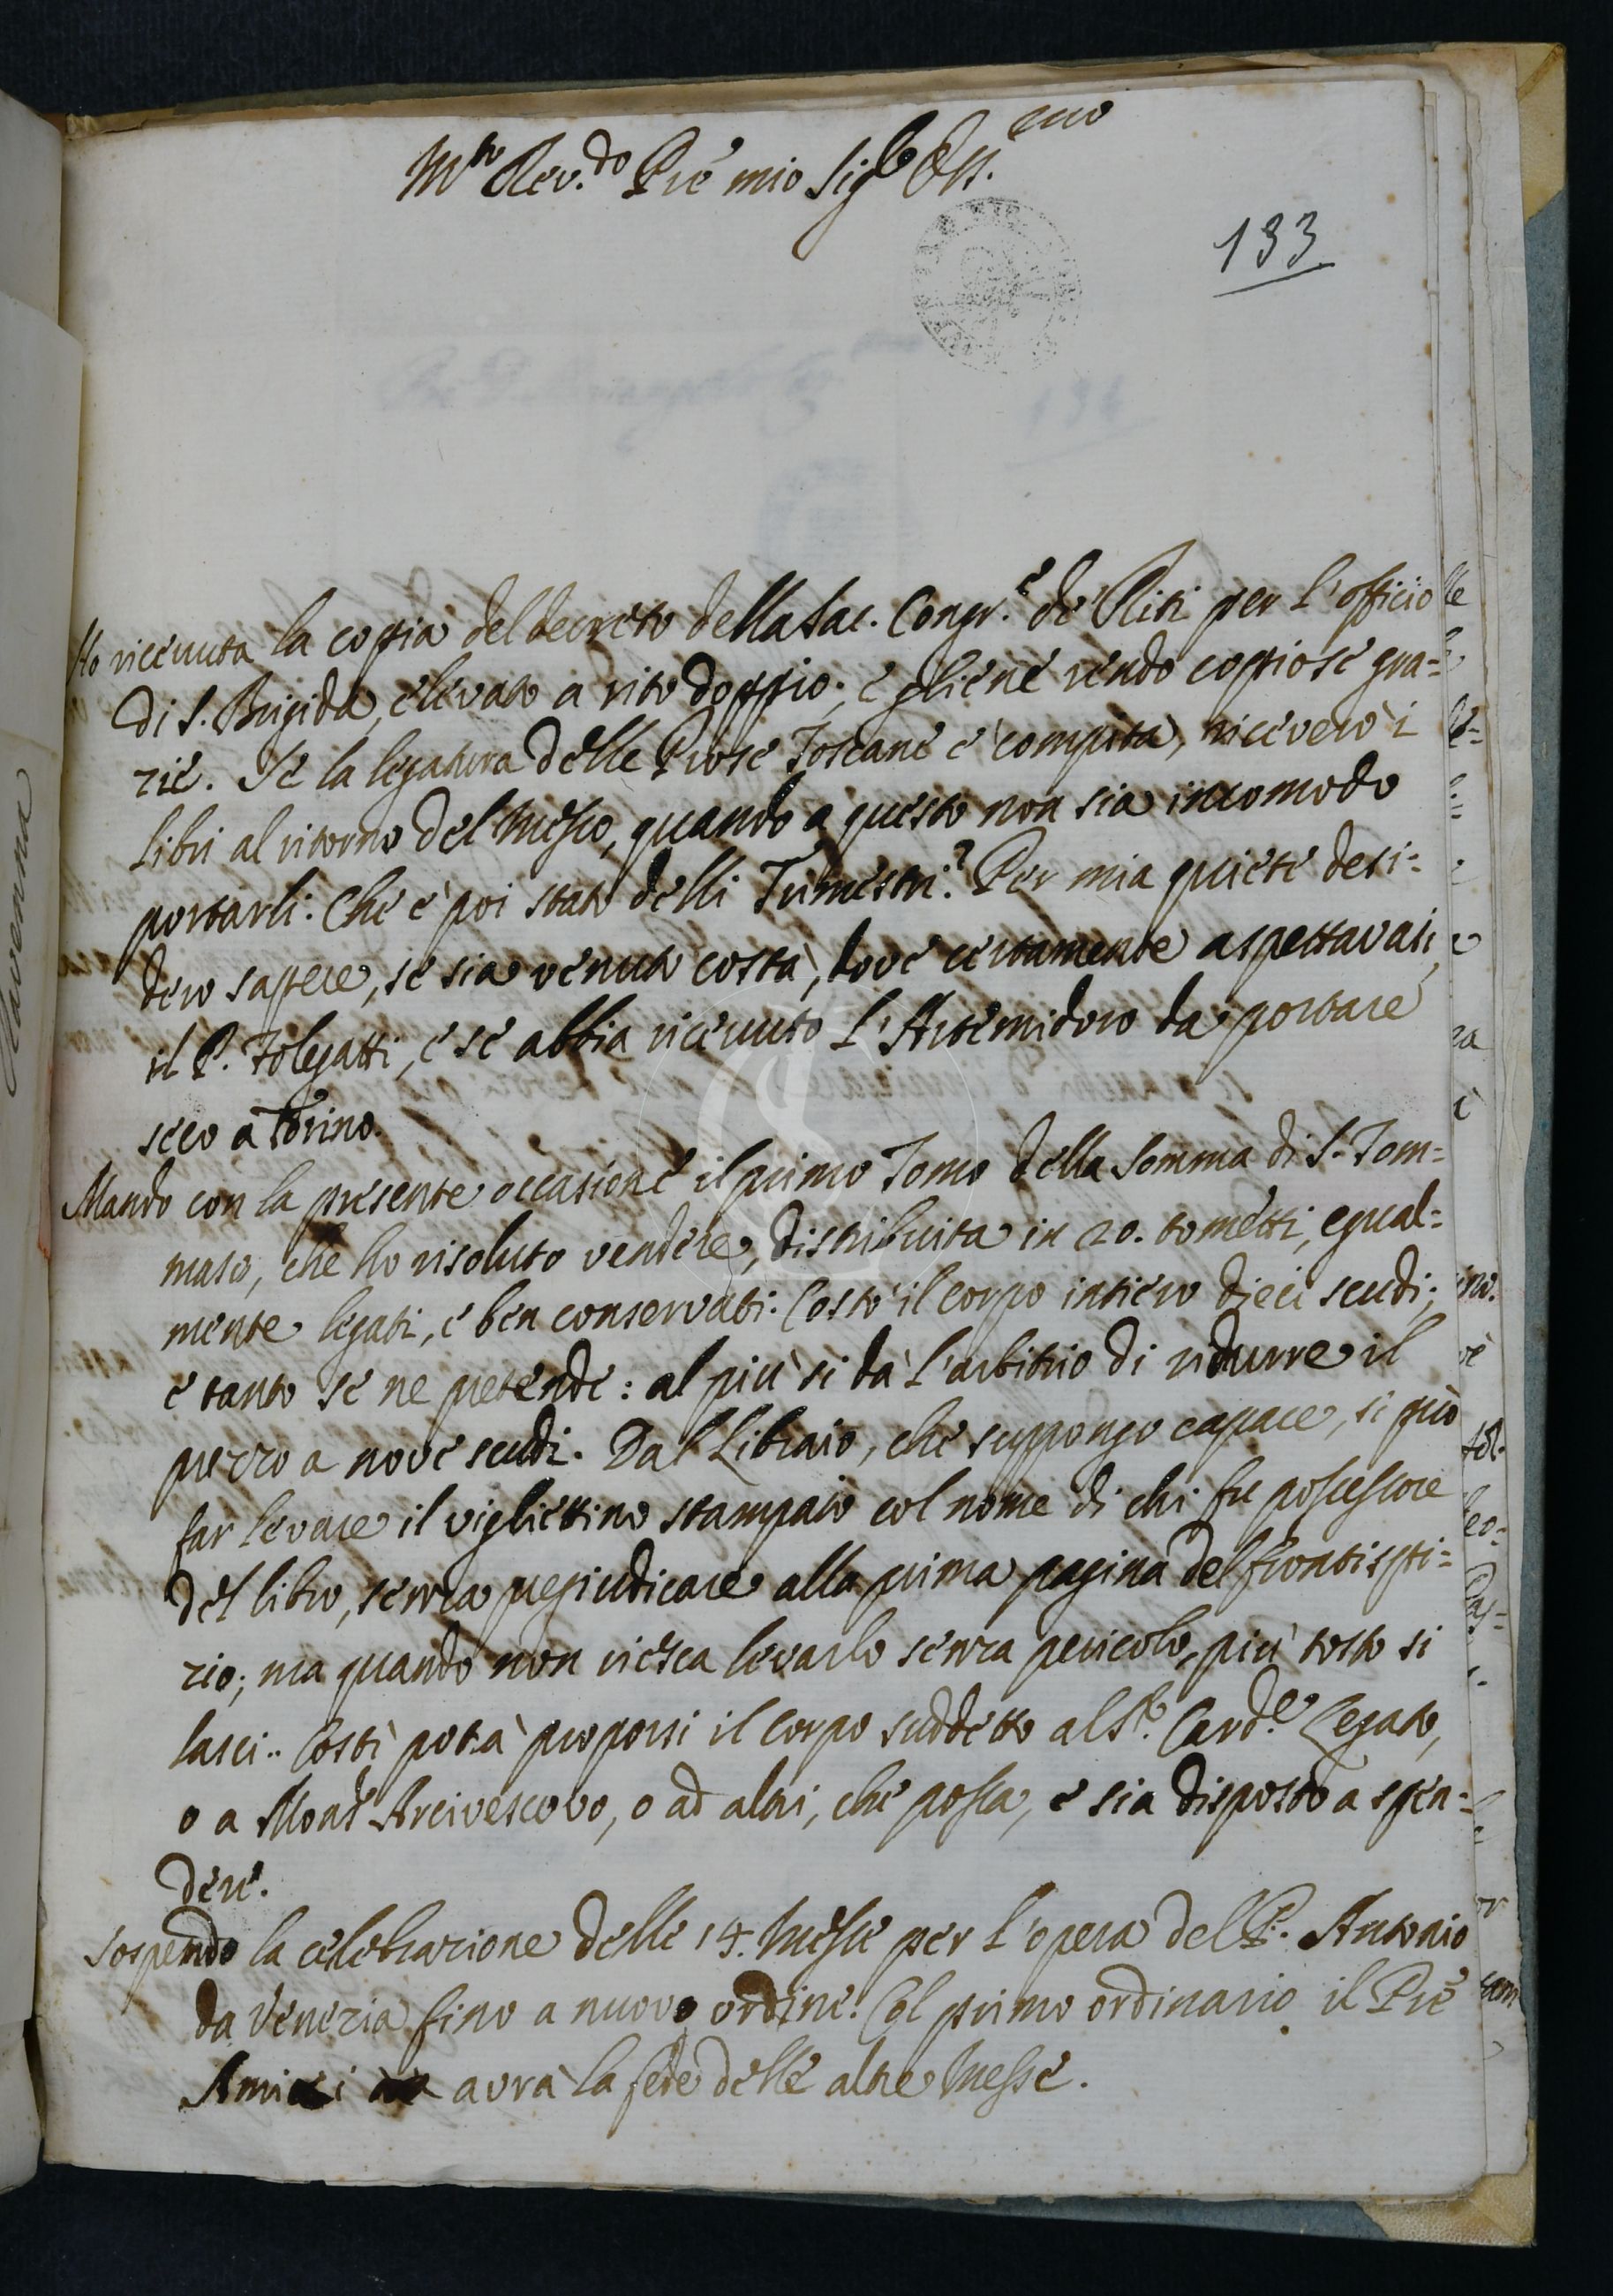 M.to Rev.do Pre mio Sig.e Oss.mo
133
Ho ricevuta la copia del decreto della Sac. Congr.e de' Riti per l'officio
di S. Brigida, elevato a rito doppio; e gliene rendo copiose gra=
zie. Se la legatura delle Prose Toscane è compita, riceverò i
libri al ritorno del Messo, quando a questo non sia incomodo
portarli. Che è poi stato delli Trimestri? Per mia quiete desi=
dero sapere, se sia venuto costà, dove certamente aspettavasi,
il P. Folegatti, e se abbia ricevuto l'Artemidoro da portare
seco a Torino.
Mando con la presente occasione il primo Tomo della Somma di S. Tom=
maso, che ho risoluto vendere, distribuita in 20. tometti, egual=
mente legati, e ben conservati. Costò il corpo intiero dieci scudi;
e tanto se ne pretende: al più si dà l'arbitrio di ridurre il
prezzo a nove scudi. Dal Libraio, che suppongo capace, si può
far levare il vigliettino stampato col nome di chi fu possessore
del libro, senza pregiudicare alla prima pagina del frontispi=
zio; ma quando non riesca levarlo senza pericolo, più tosto si
lasci. Costì potrà proporsi il corpo suddetto al S.r Card.e Legato,
o a Mons.r Arcivescovo, o ad altri, che possa, e sia disposto a spen=
dere.
Sospendo la celebrazione delle 14. Messe per l'opera del P. Antonio
da Venezia fino a nuovo ordine. Col primo ordinario il Pre
Amici avrà la fede delle altre Messe.
Ravenna